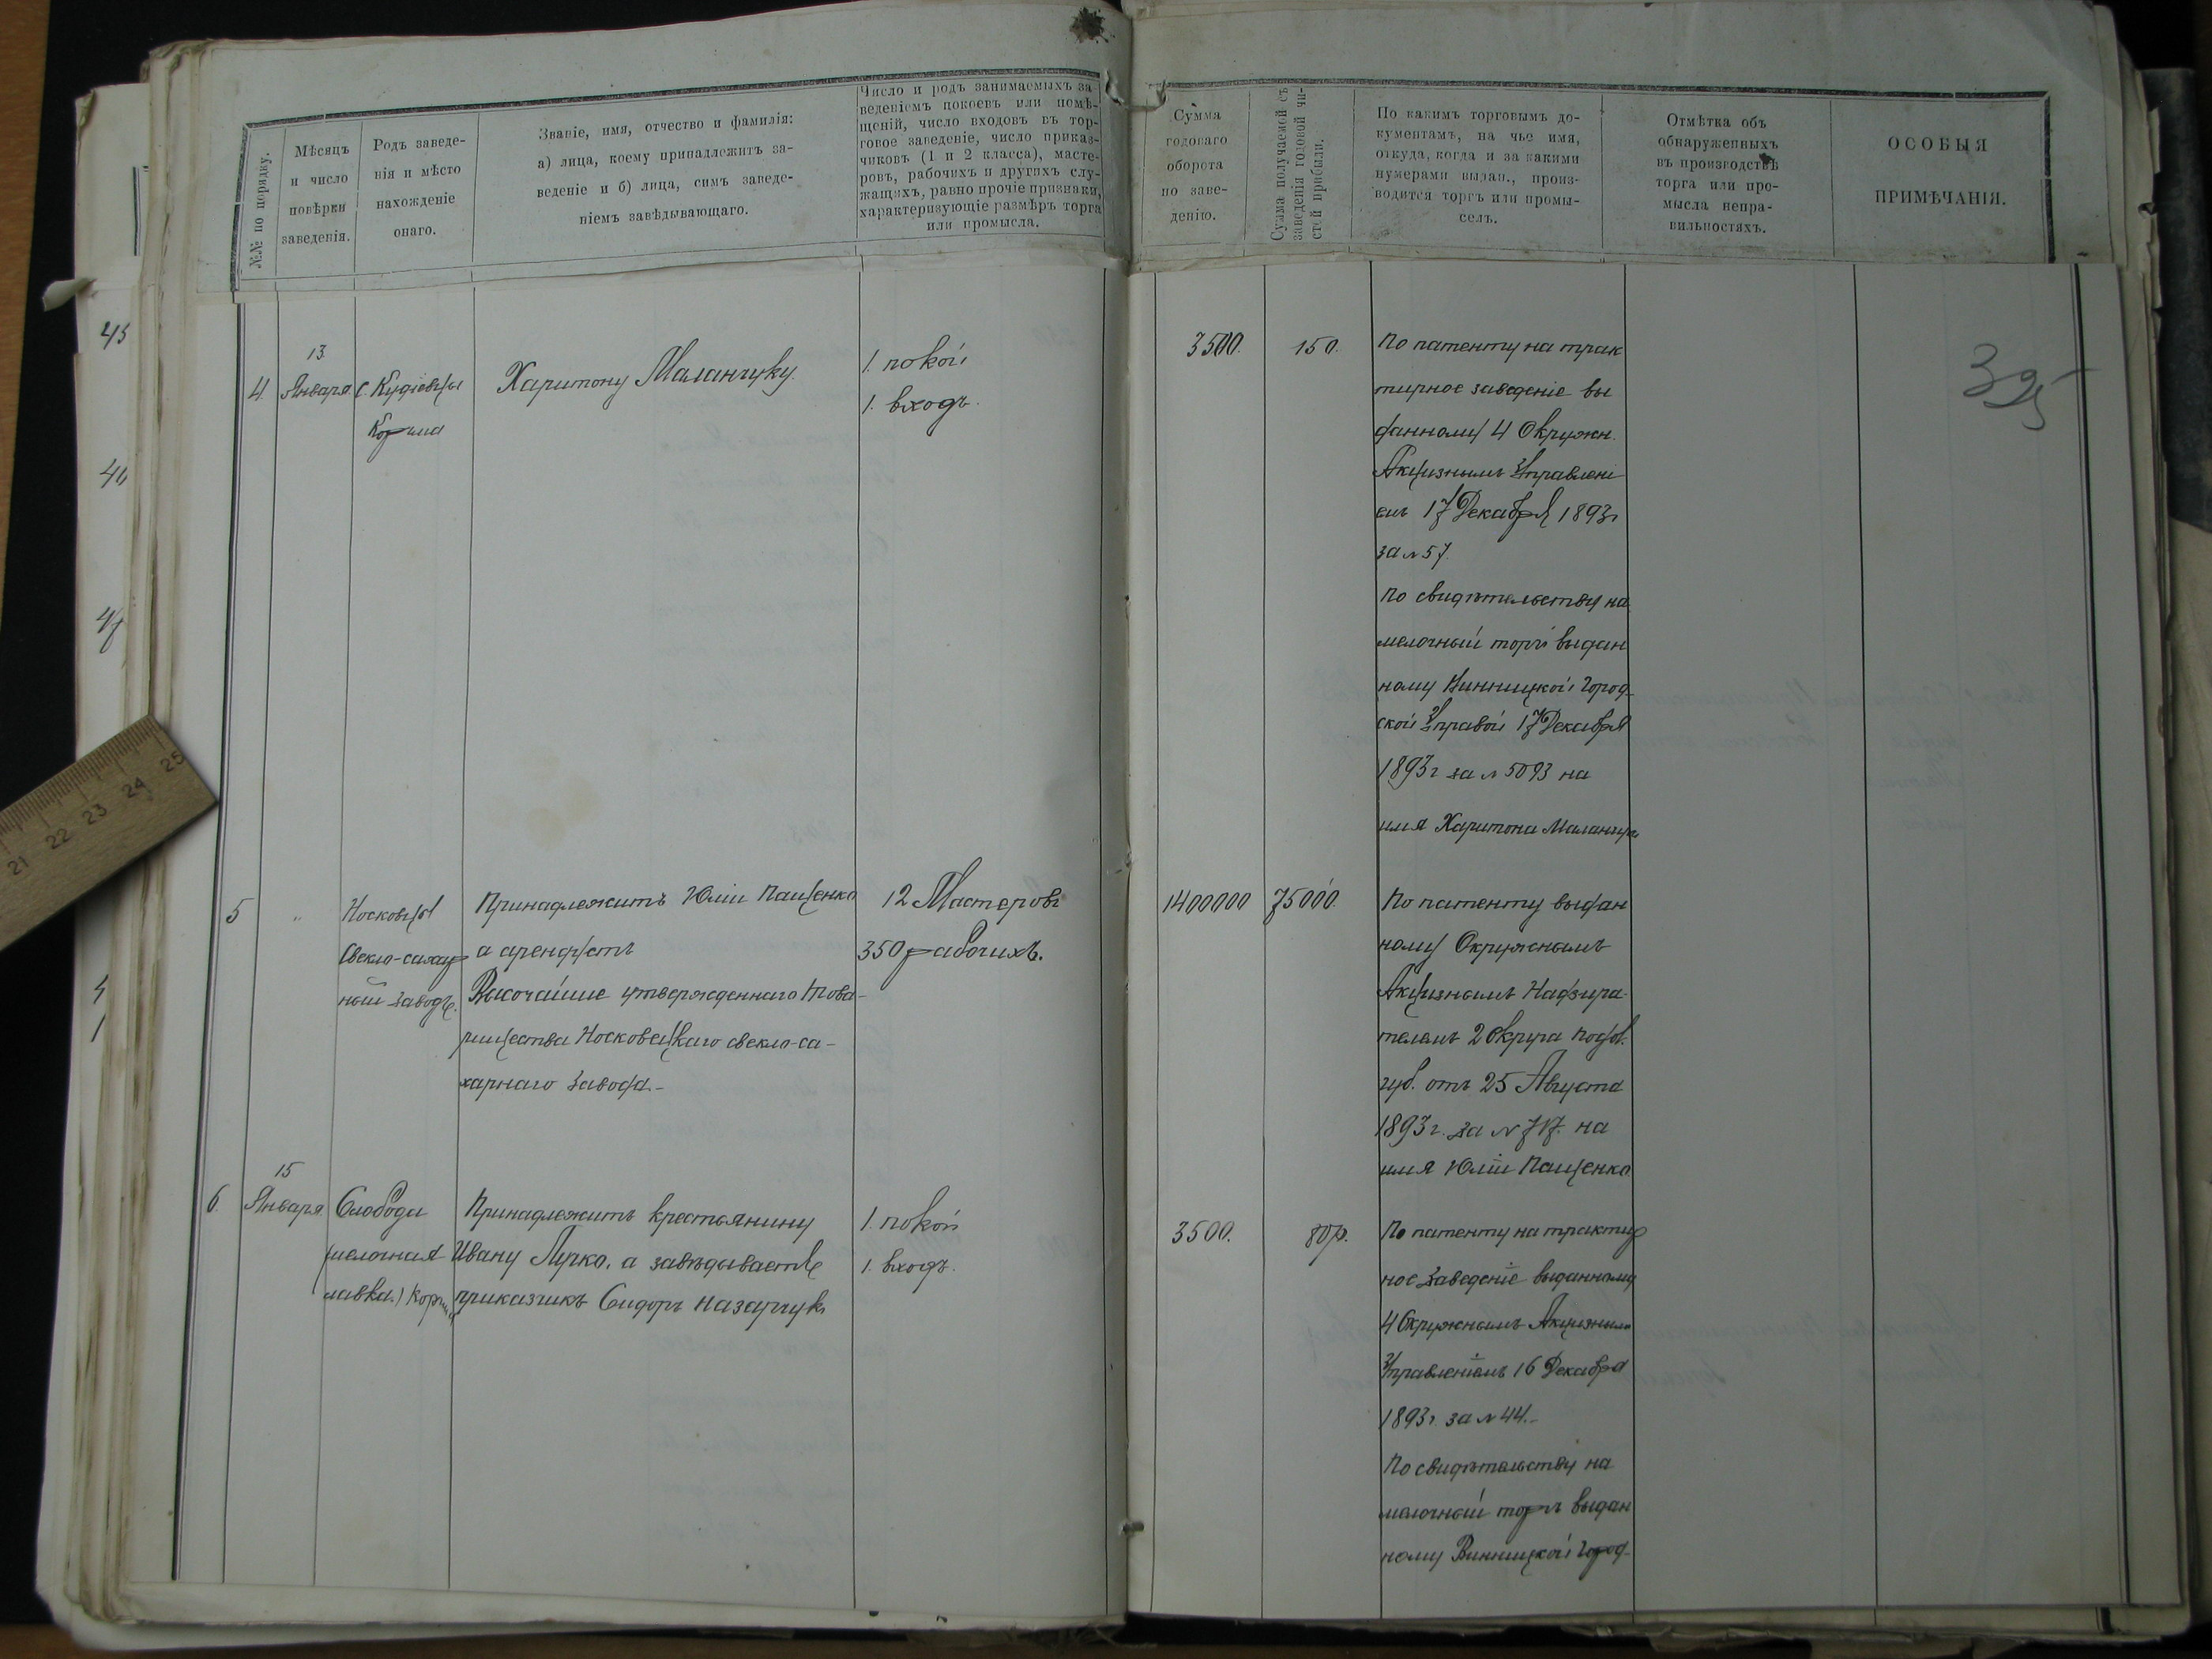 №№ по порядку.
Мѣсяцъ
и число
повѣрки
заведенія.
Родъ заведе-
нія и мѣсто
нахожденіе
онаго.
Званіе, имя, отчество и фамилія:
а) лица, коему принадлежитъ за-
веденіе и б) лица, симъ заведе-
ніемъ завѣдывающаго.
Число и родъ занимаемыхъ за-
веденіемъ покоевъ или помѣ-
щеній, число входовъ въ тор-
говое заведеніе, число приказ-
чиковъ (1 и 2 класса), масте-
ровъ, рабочихъ и другихъ слу-
жащихъ, равно прочіе признаки,
характеризующіе размѣръ торга
или промысла.
Сумма
годоваго
оборота
по заве-
денію.
Сумма получаемой съ
заведенія годовой чи-
стой прибыли.
По какимъ торговымъ до-
кументамъ, на чье имя,
откуда, когда и за какими
нумерами выдан., произ-
водится торгъ или промы-
селъ.
Отмѣтка объ
обнаруженныхъ
въ производствѣ
торга или про-
мысла непра-
вильностяхъ.
ОСОБЫЯ
ПРИМѢЧАНІЯ.
45
46
47
4.
13.
Января
С. Кудіевцы
Корчма
Харитону Маланчуку.
1. покой
1. входъ.
3500.
150.
По патенту на трак
тирное заведеніе вы
данному 4 Окружн.
Акцизнымъ Управлені
емъ 17 Декабря 1893г
за № 57.
По свидѣтельству на
мелочный торгъ выдан
ному Винницкой Город-
ской Управой 17 Декабря
1893г за № 5093 на
имя Харитона Маланчука
5
"
Носковцы
Свекло-сахар
ный заводъ.
Принадлежитъ Юліи Пащенко
а арендуетъ
Высочайше утвержденнаго Това-
рищества Носковецкаго свекло-са-
харнаго завода.-
12 Мастеровъ
350 рабочихъ.
1400000
75000.
По патенту выдан
ному Окружнымъ
Акцизнымъ Надзира-
телемъ 2 округа Подол.
губ. отъ 25 Августа
1893г. за № 717. на
имя Юліи Пащенко
6.
15
Января
Слобода
(мелочная
лавка.) Корчма
Принадлежитъ крестьянину
Ивану Лурко, а завѣдываетъ
приказчикъ Сидоръ Назарчукъ
1. покой
1. входъ.
3500.
80р.
По патенту на трактир
ное заведеніе выданному
4 Окружнымъ Акцизнымъ
Управленіемъ 16 Декабря
1893г за № 44.-
По свидѣтельству на
мелочный торгъ выдан
ному Винницкой Город-
21 22 23 24 25